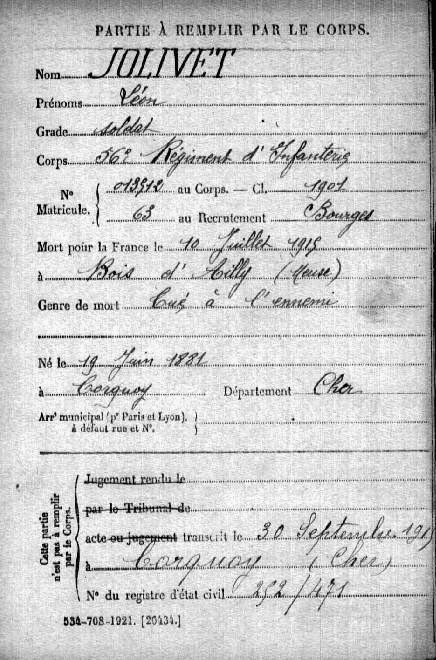 PARTIE À REMPLIR PAR LE CORPS.
Nom JOLIVET
Prénoms Léon
Grade soldat
Corps 56e Régiment d'Infanterie
N° Matricule. { 013512 au Corps. — Cl. 1901
63 au Recrutement Bourges
Mort pour la France le 10 Juillet 1915
à Bois d'Ailly (Meuse)
Genre de mort Tué à l'ennemi
Né le 19 Juin 1881
à Corquoy Département Cher
Arrt municipal (pr Paris et Lyon),
à défaut rue et N°.
Cette partie n'est pas à remplir par le Corps.
Jugement rendu le
par le Tribunal de
acte ou jugement transcrit le 30 Septembre 1915
à Corquoy (Cher)
N° du registre d'état civil 252/471
534-708-1921. [26434.]